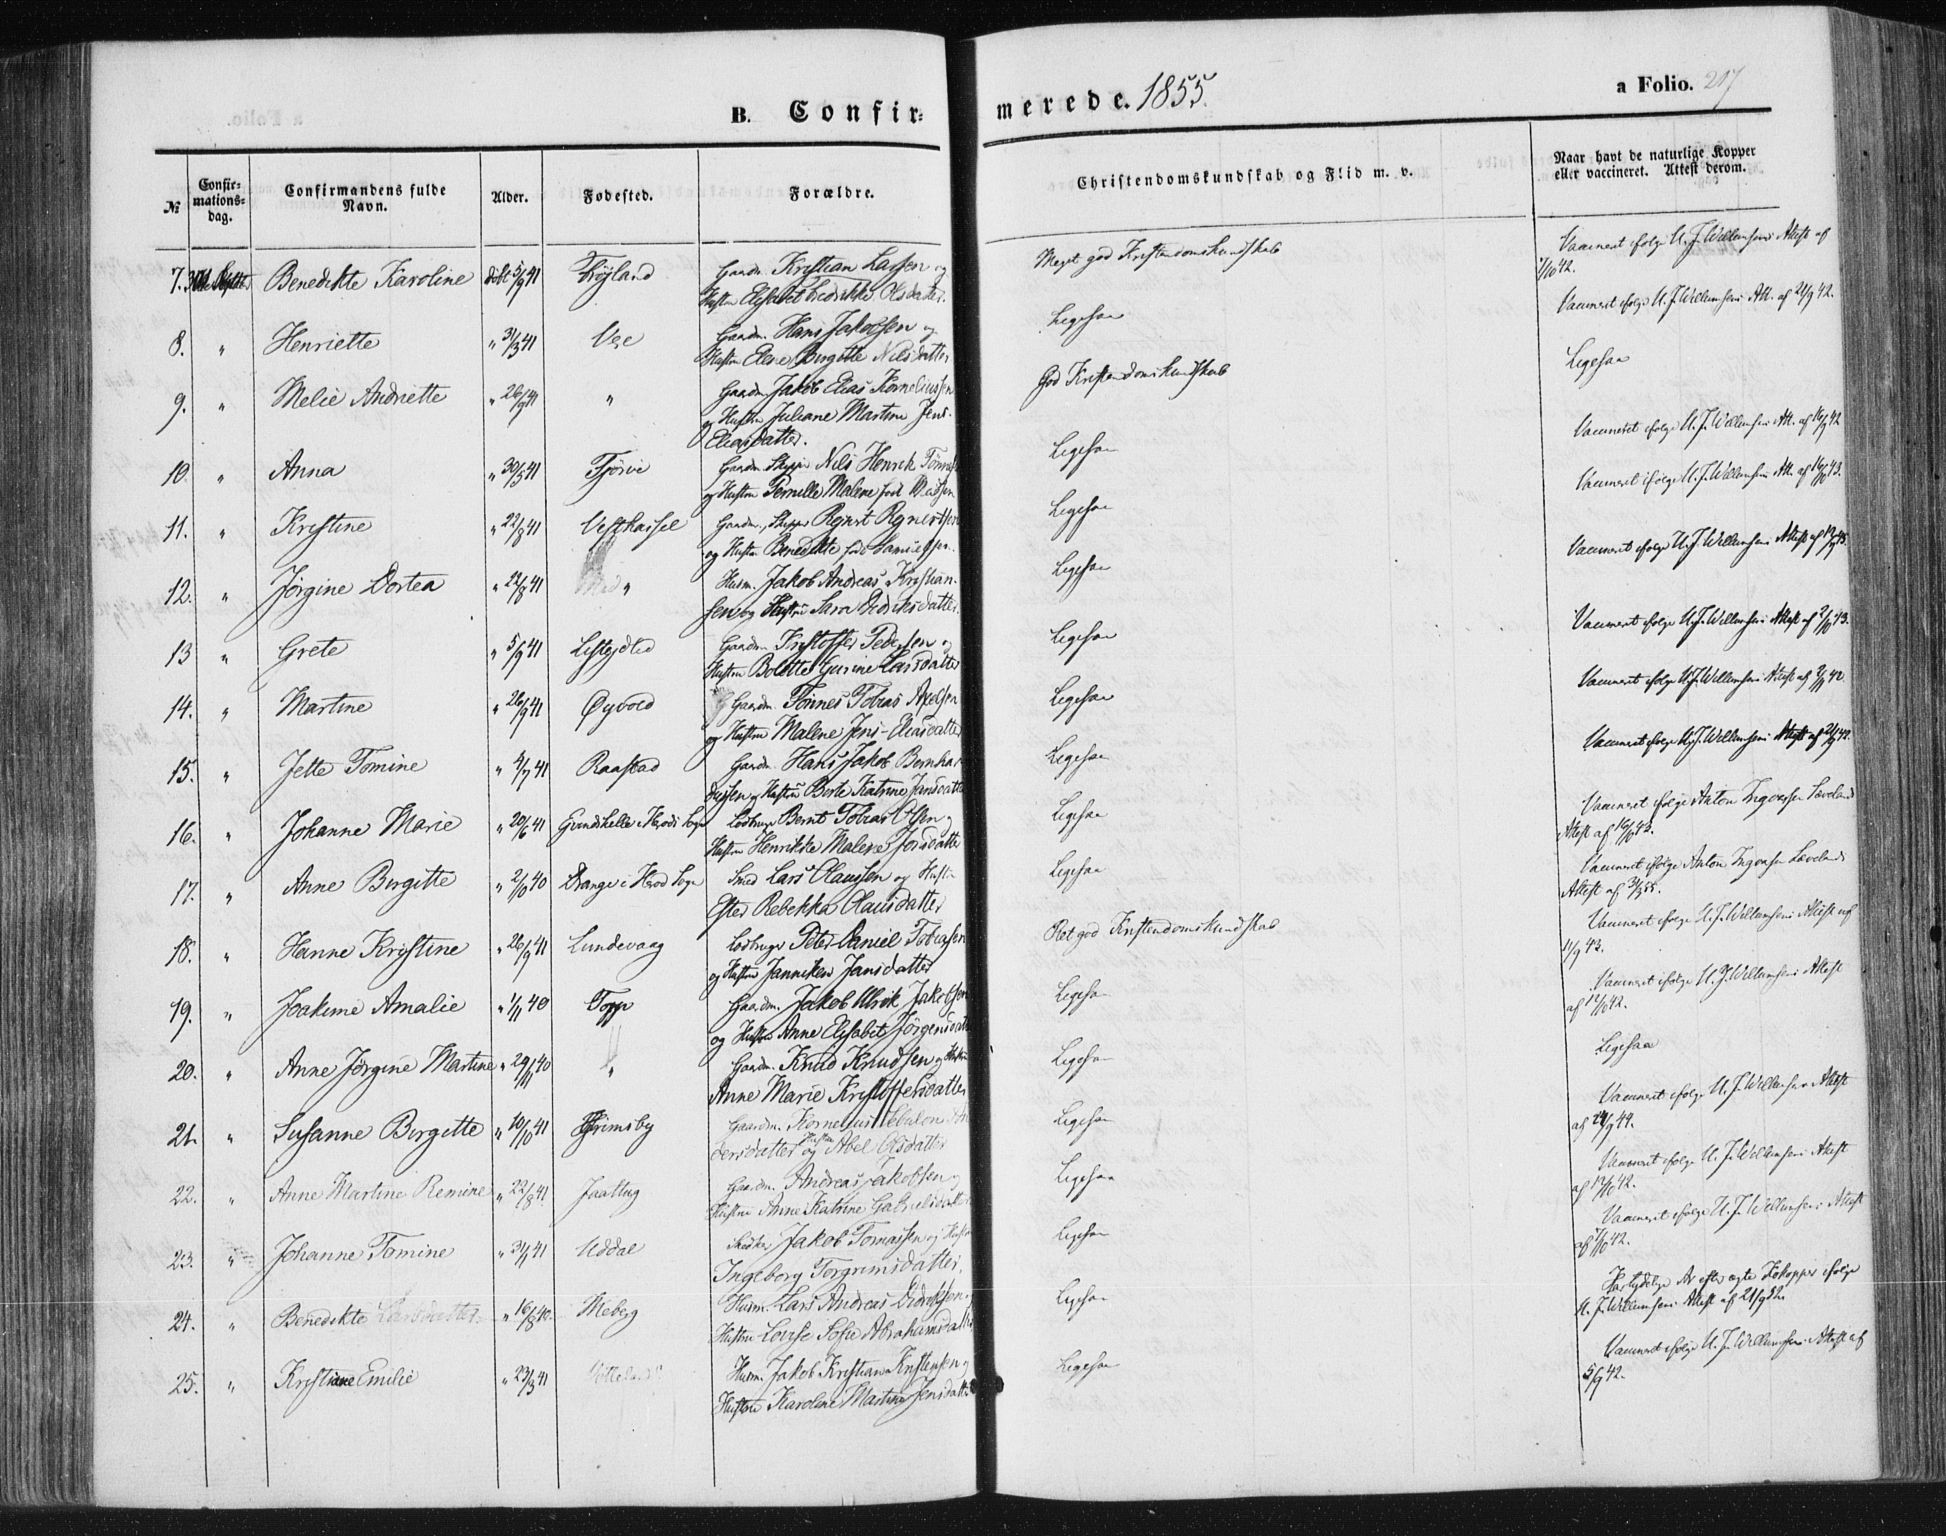 B. Confir=merede. 1855.
a Folio. 217
№
Confir-mations-dag.
Confirmandens fulde Navn.
Alder.
Fødested.
Forældre.
Christendomskundskab og Flid m. v.
Naar havt de naturlige Kopper eller vaccineret. Attest derom.
7. Benedikte Karoline døbt 5/9 41 Gaardm. Kristian Lassen og Meget god Kristendomskundskab Vaccineret ifølge U. J. Willumsens Attest af
Hustru Elisabet Fredrikke Olsdatter 7/10 42.
8. " Henriette " 31/3 41 Vee Gaardm. Hans Jakobsen og Ligesaa Vaccineret ifølge U. J. Willumsens Att. af 21/9 42.
Hustru Elene Birgitte Nilsdatter
9. " Melie Andriette " 26/9 41 " Gaardm. Jakob Elias Korneliussen God Kristendomskundskab Ligesaa
og Hustru Juliane Martine Jens-
Eliasdatter.
10. " Anna " 30/5 41 Tjørve Gaardm. Skipper Nils Henrik Ligesaa Vaccineret ifølge U. J. Willumsens Att. af 16/9 42
og Hustru Pernille Malene født Madsen
11. " Kristine " 22/8 41 Vesthassel Gaardm., Skipper Regnert Regnertsen Ligesaa Vaccineret ifølge U. J. Willumsens Att. af 16/10 43.
og Hustru Benedikte født Samuelsen.
12. " Jørgine Dortea " 22/8 41 " Husm. Jakob Andreas Kristian- Ligesaa Vaccineret ifølge U. J. Willumsens Attest af
sen og Hustru Sara Didriksdatter.
13 " Grete " 5/9 41 Gaardm. Kristoffer Pedersen og Ligesaa Vaccineret ifølge U. J. Willumsens Attest af 2/10 43.
Hustru Bolette Gurine Larsdatter
14. " Martine " 26/9 41 Øyvold Gaardm. Tønnes Tobias Axelsen Ligesaa Vaccineret ifølge U. J. Willumsens Attest af
og Hustru Malene Jens-Eliasdatter
15. " Jette Tomine " 4/7 41 Raastad Gaardm. Hans Jakob Bernhar- Ligesaa Vaccineret ifølge U. J. Willumsens Attest af 21/9 42.
dussen og Hustru Berte Katrine Jansdatter
16. " Johanne Marie " 20/6 41 i Herods Sogn Lodbruger Bernt Tobias Olsen og Ligesaa Vaccineret ifølge Anton Ingvorsen Løvelands
Hustru Henrikke Malene Attest af 16/10 43.
17. " Anne Birgitte " 2/10 40 Drange i Herod Sogn Smed Lars Olaussen og Hustru Ligesaa Vaccineret ifølge Anton Ingvorsen Løvelands
Ester Rebekka Olausdatter Attest af
18. " Hanne Kristine " 26/9 41 Lundevaag Lodbruger Peter Daniel Tobiasen Ret god Kristendomskundskab Vaccineret ifølge U. J. Willumsens Attest af
og Hustru Janniken Jansdatter 11/9 43.
19. " Joakime Amalie " 1/11 40 Topp Gaardm. Jakob Ulrik Jakobsen Ligesaa Vaccineret ifølge U. J. Willumsens Attest
og Hustru Anne Elisabet Jørgensdatter af 12/10 42.
20. " Anne Jørgine Martine " 29/11 40 " Gaardm. Knud Knudsen og Hustru Ligesaa Ligesaa
Anne Marie Kristoffersdatter
21. " Susanne Birgitte " 10/10 41 Grimsby Gaardm. Kornelius Sebulon An Ligesaa Vaccineret ifølge U. J. Willumsens Attest
dersdatter og Hustru Abel Olsdatter af 24/9 44.
22. " Anne Martine Remine " 22/8 41. Jaattug Gaardm. Andreas Jakobsen og Ligesaa Vaccineret ifølge U. J. Willumsens Attest
Hustru Anne Katrine Gabrielsdatter af 12/10 42.
23. " Johanne Tomine " 31/1 41 Uddal Jakob Tomassen og Hustru Ligesaa Vaccineret ifølge U. J. Willumsens Attest
Ingeborg Torgrimsdatter. af 7/10 42.
24. " Benedikte Larsdatter " 16/8 40. Meberg Husm. Lars Andreas Didriksen og Ligesaa Har tydelige Ar efter ægte Kokopper ifølge
Hustru Lovise Sofie Abrahamsdatter U. J. Willumsens Attest af 21/9 52.
25. " Kristiane Emilie " 23/3 41 Husm. Jakob Kristian Kristensen og Ligesaa Vaccineret ifølge U. J. Willumsens Attest af
Hustru Karoline Martine Jensdatter 5/9 42.